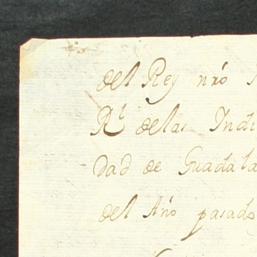 del Rey nr̃o
Rl. delas Indi
dad de Guadala
del Año pasado